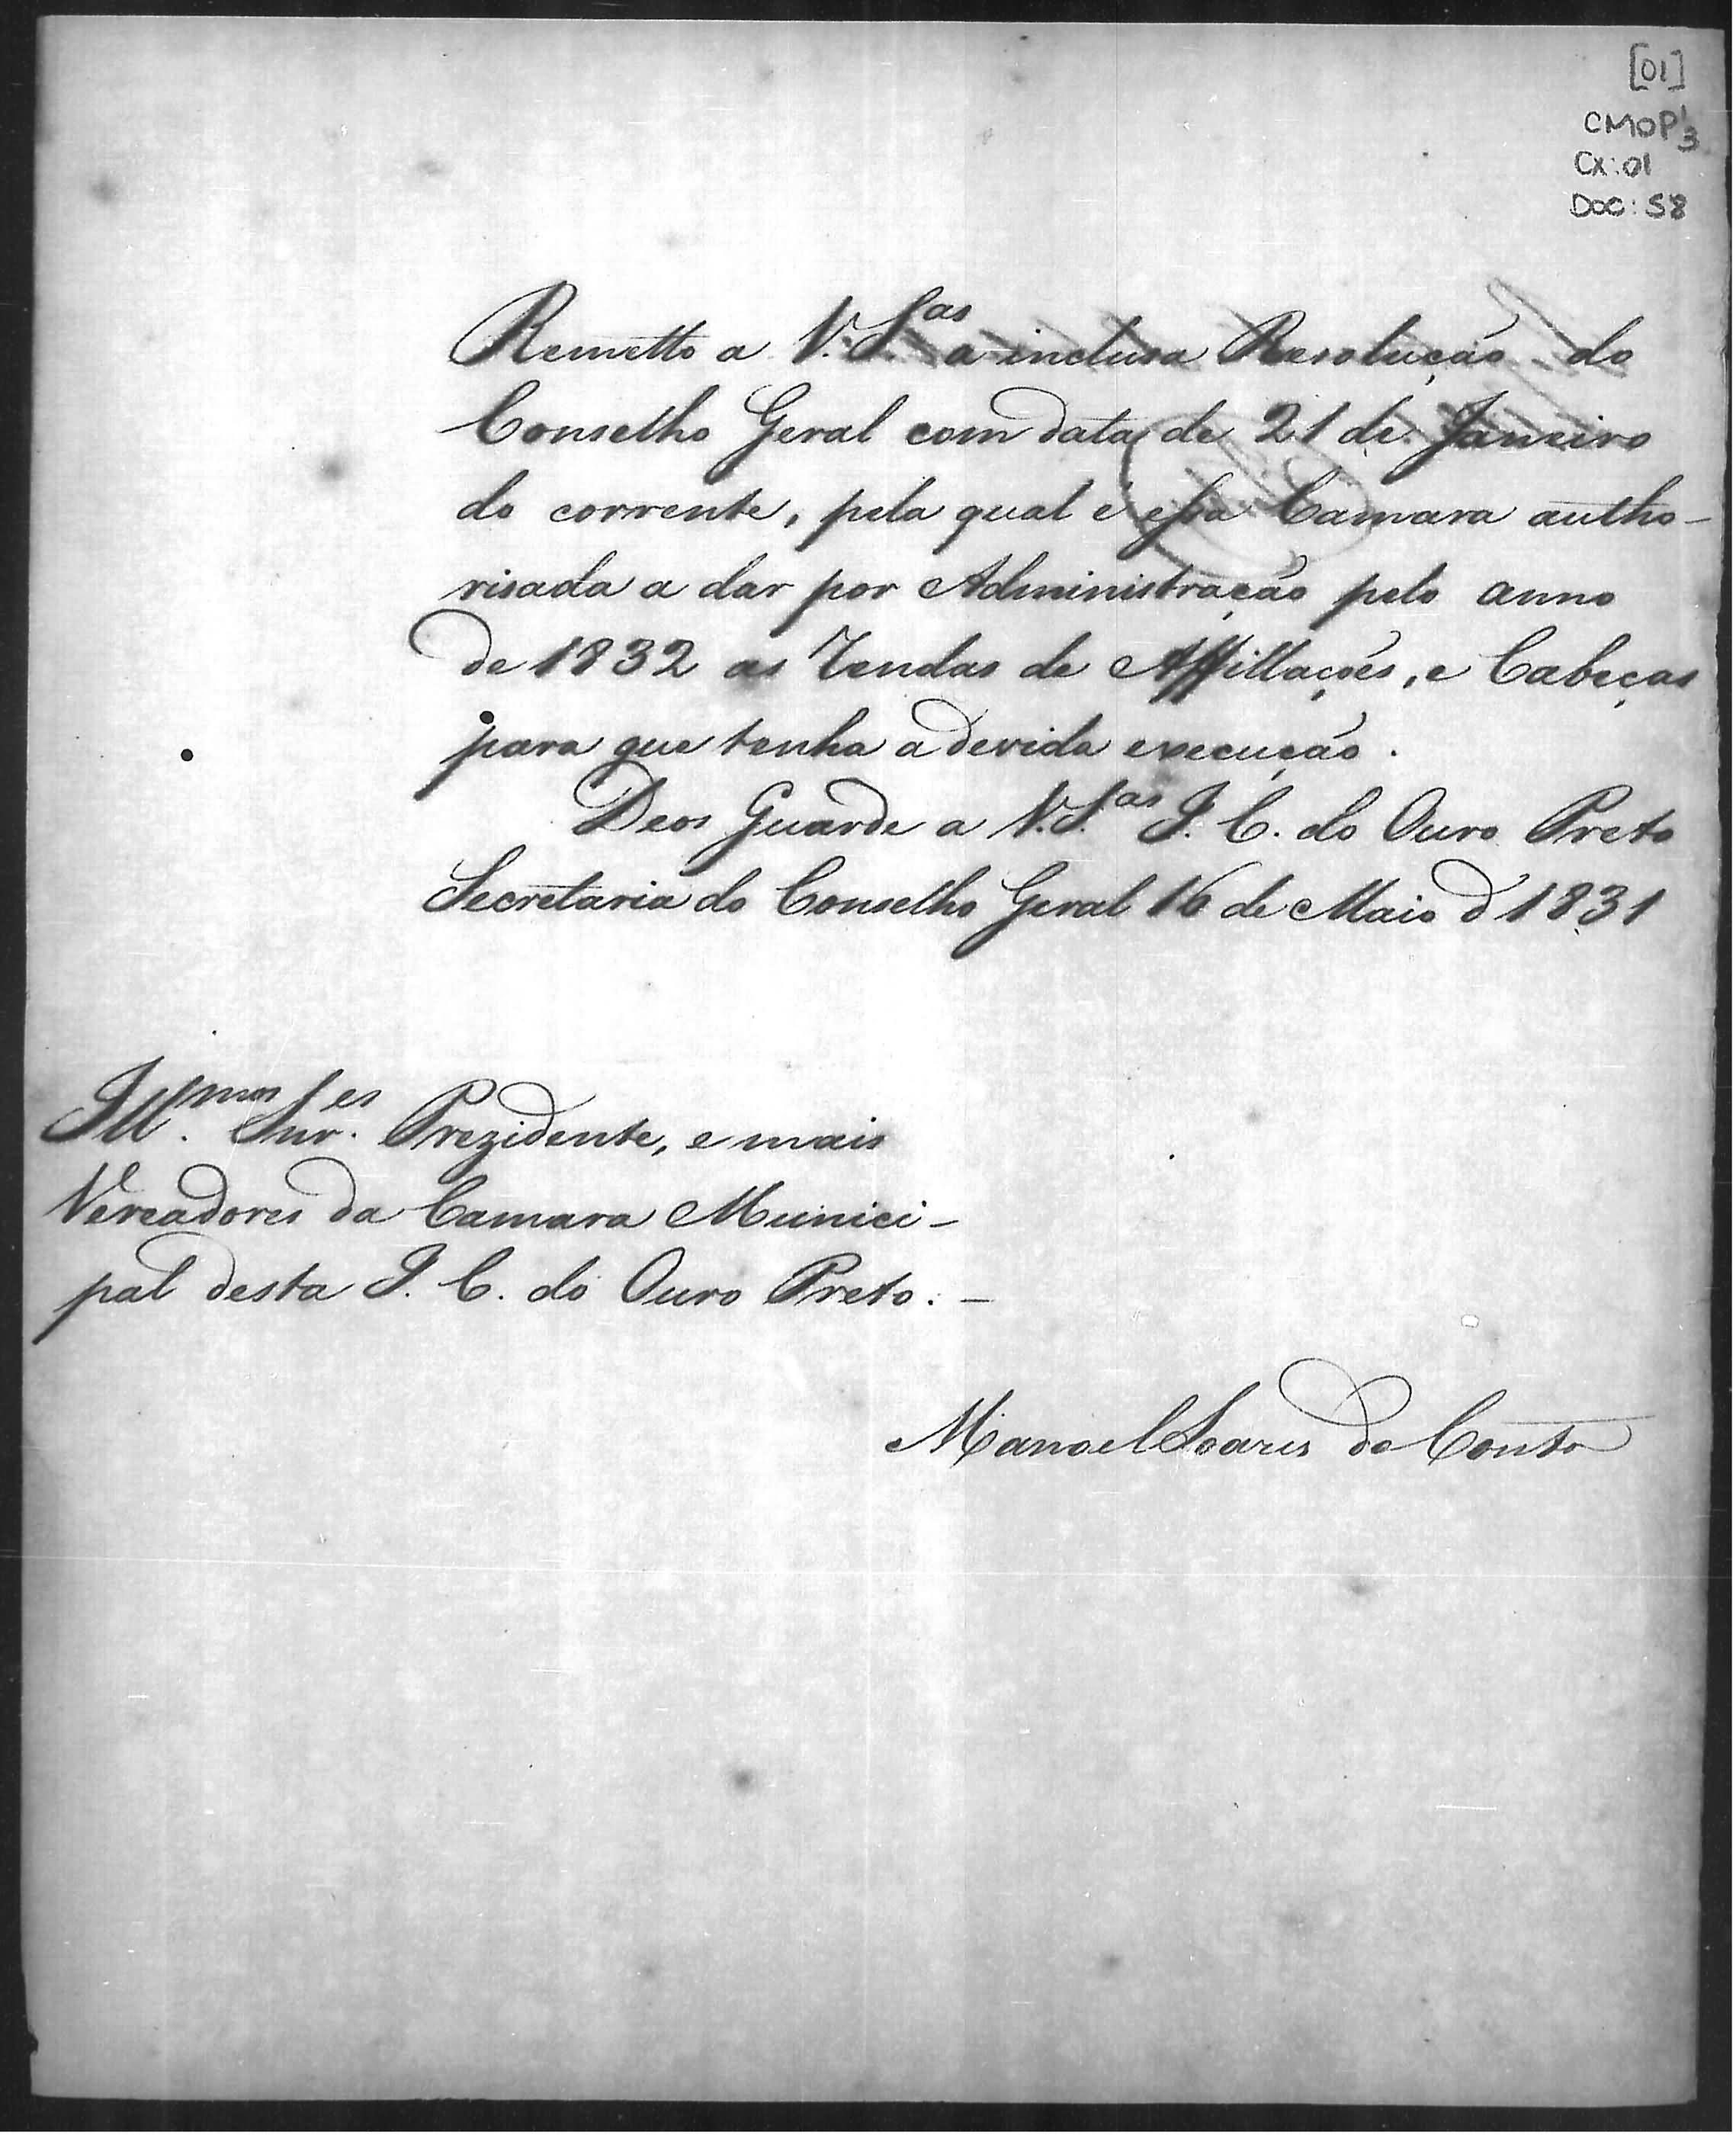 [01]
CMOP 1/3
CX: 01
DOC: 58
Remetto a V. S.as a inclusa Resolução do
Conselho Geral com data de 21 de Janeiro
do corrente, pela qual é essa Camara autho-
risada a dar por Administração pelo anno
de 1832 as Rendas de Affillações, e Cabeças
para que tenha a devida execução.
Deos Guarde a V. S.as I. C. do Ouro Preto
Secretaria do Conselho Geral 16 de Maio d 1831
Ill.mos Snr.es Prezidente, e mais
Vereadores da Camara Munici-
pal desta I. C. do Ouro Preto. -
Manoel Soares do Couto